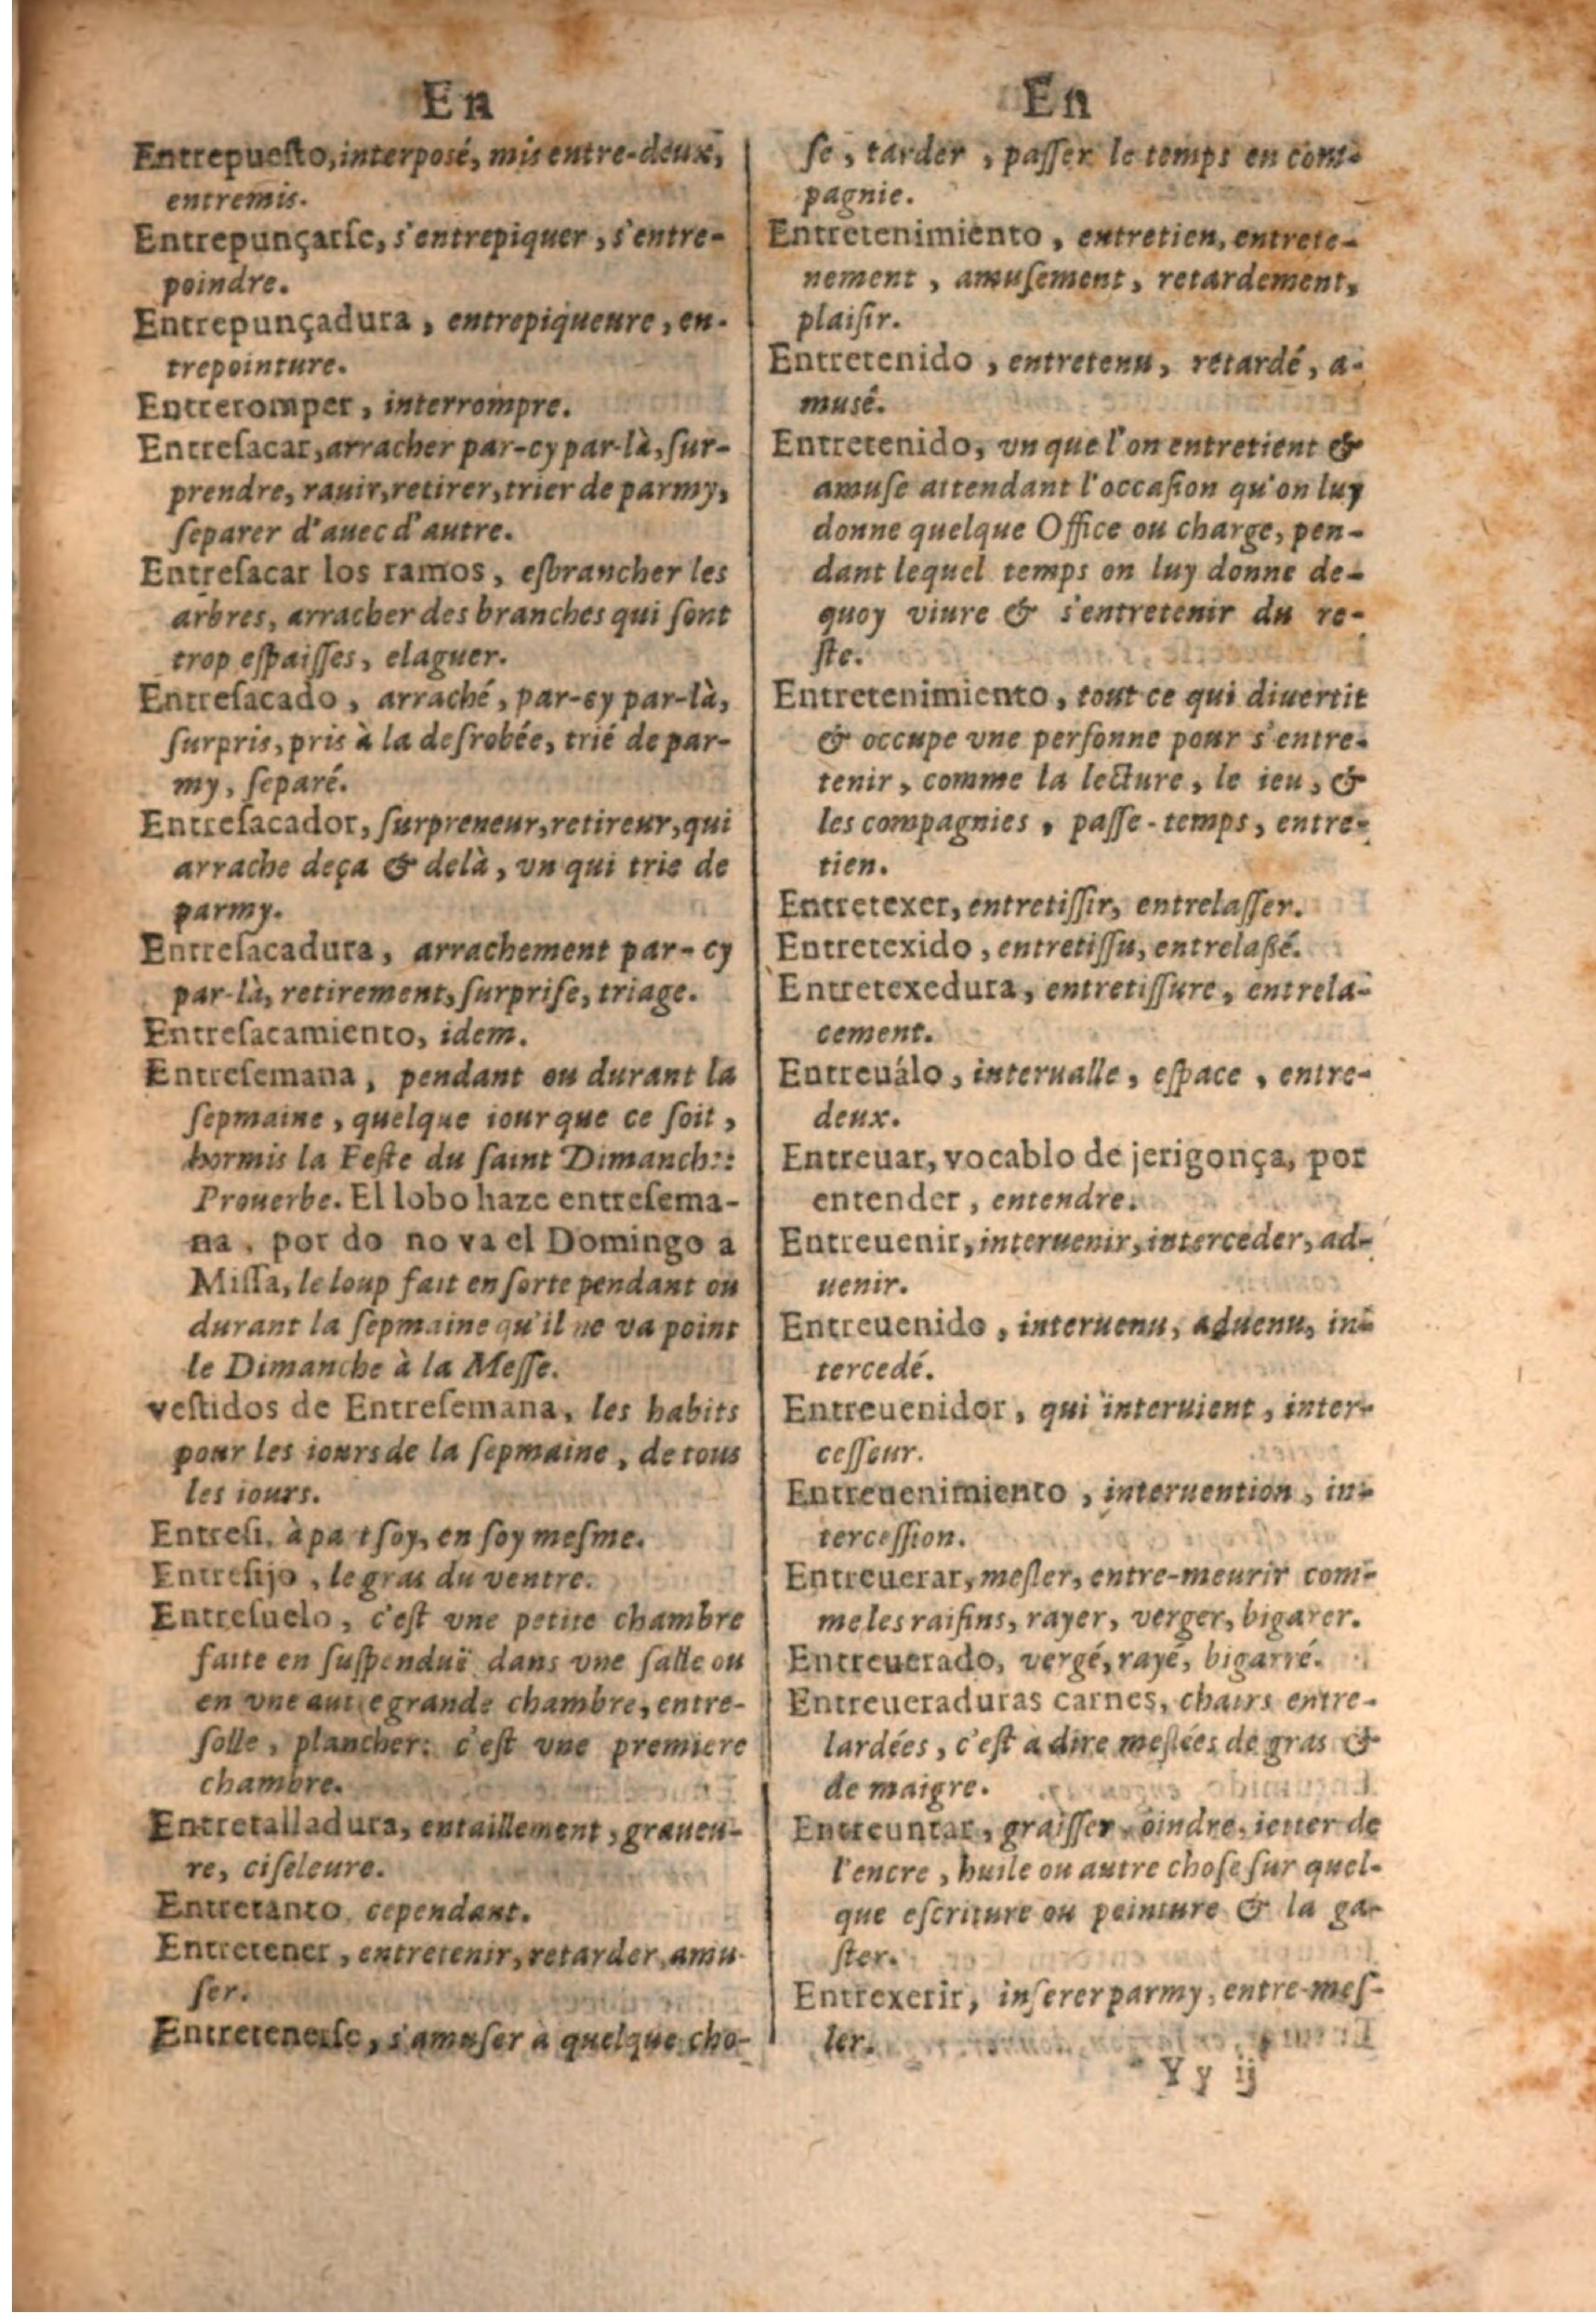 En
Entrepueſto, interposé, mis entre-deux,
entremis.
Entrepunçarſe, s'entrepiquer, s'entre-
poindre.
Entrepunçadura, entrepiqueure, en-
trepointure.
Entreromper, interrompre.
Entreſacar, arracher par-cy par-là, ſur-
prendre, rauir, retirer, trier de parmy,
ſeparer d'auec d'autre.
Entreſacar los ramos, eſbrancher les
arbres, arracher des branches qui ſont
trop eſpaiſſes, elaguer.
Entreſacado, arraché, par-cy par-là,
ſurpris, pris à la deſrobée, trié de par-
my, ſeparé.
Entreſacador, ſurpreneur, retireur, qui
arrache deça & delà, vn qui trie de
parmy.
Entreſacadura, arrachement par-cy
par-là, retirement, ſurpriſe, triage.
Entreſacamiento, idem.
Entreſemana, pendant ou durant la
ſepmaine, quelque iour que ce ſoit,
hormis la Feſte du ſaint Dimanche:
Prouerbe. El lobo haze entreſema-
na, por do no va el Domingo a
Miſſa, le loup fait en ſorte pendant ou
durant la ſepmaine qu'il ne va point
le Dimanche à la Meſſe.
veſtidos de Entreſemana, les habits
pour les iours de la ſepmaine, de tous
les iours.
Entreſi, à pa t ſoy, en ſoy meſme.
Entreſijo, le gras du ventre.
Entreſuelo, c'eſt vne petite chambre
faite en ſuſpenduë dans vne ſalle ou
en vne autre grande chambre, entre-
ſolle, plancher: c'eſt vne premiere
chambre.
Entretalladura, entaillement, graueu-
re, ciſeleure.
Entretanto, cependant.
Entretener, entretenir, retarder, amu-
ſer.
Entretenerſe, s'amuſer à quelque cho-
En
ſe, tarder, paſſer le temps en com-
pagnie.
Entretenimiento, entretien, entrete-
nement, amuſement, retardement,
plaiſir.
Entretenido, entretenu, retardé, a-
musé.
Entretenido, vn que l'on entretient &
amuſe attendant l'occaſion qu'on luy
donne quelque Office ou charge, pen-
dant lequel temps on luy donne de-
quoy viure & s'entretenir du re-
ſte.
Entretenimiento, tout ce qui diuertit
& occupe vne perſonne pour s'entre-
tenir, comme la lecture, le ieu, &
les compagnies, paſſe-temps, entre-
tien.
Entretexer, entretiſſir, entrelaſſer.
Entretexido, entretiſſu, entrelaßé.
Entretexedura, entretiſſure, entrela-
cement.
Entreuálo, interualle, eſpace, entre-
deux.
Entreuar, vocablo de jerigonça, por
entender, entendre.
Entreuenir, interuenir, interceder, ad-
uenir.
Entreuenido, interuenu, aduenu, in-
tercedé.
Entreuenidor, qui interuient, inter-
ceſſeur.
Entreuenimiento, interuention, in-
terceſſion.
Entreuerar, meſler, entre-meurir com-
me les raiſins, rayer, verger, bigarer.
Entreuerado, vergé, rayé, bigarré.
Entreueraduras carnes, chairs entre-
lardées, c'eſt a dire meſlées de gras &
de maigre.
Entreuntar, graiſſer, oindre, ietter de
l'encre, huile ou autre choſe ſur quel-
que eſcriture ou peinture & la ga-
ſter.
Entrexerir, inſerer parmy, entre-meſ-
ler.
Y y ij